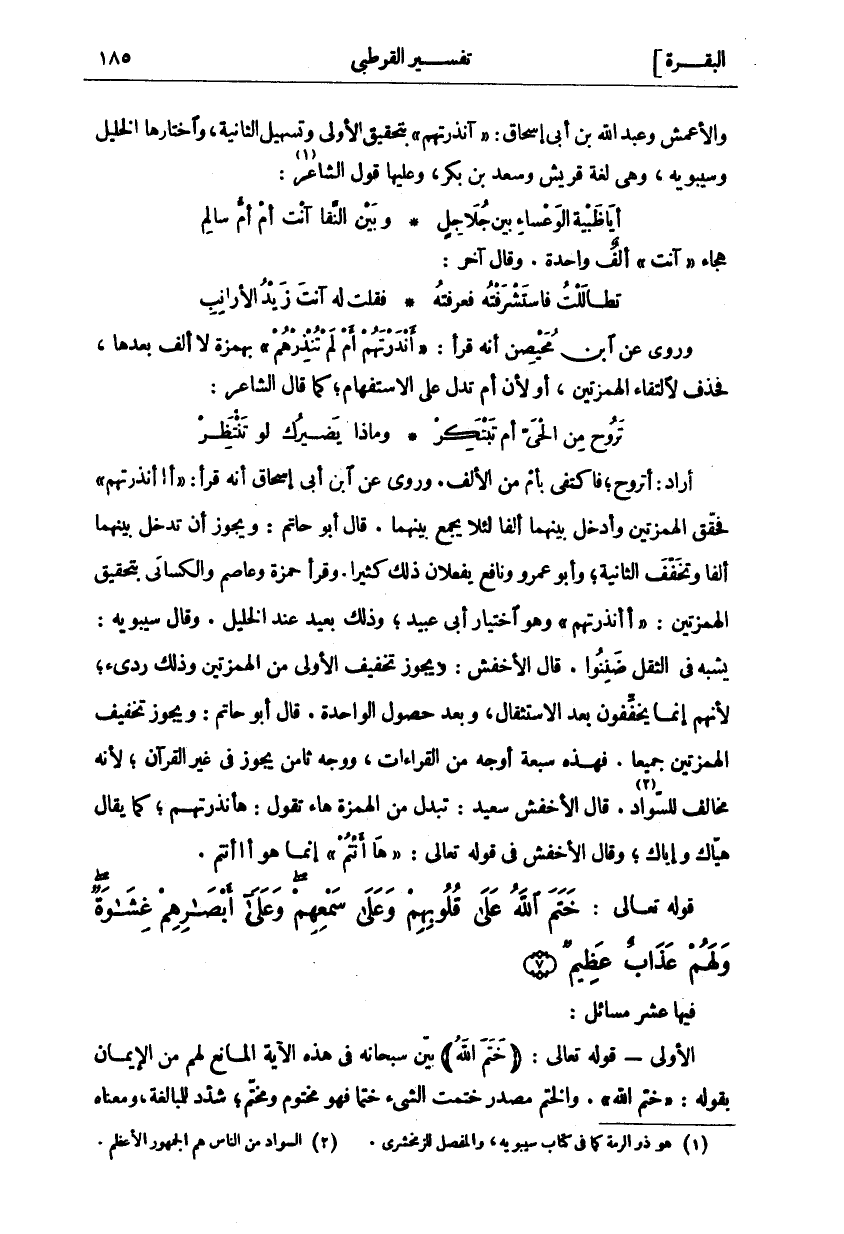 البقـــرة ]
تفســـير القرطبى
١٨٥
والأعمش وعبد الله بن أبى إسحاق: « آنذرتهم » بتحقيق الأولى وتسهيل الثانية، وآختارها الخليل
وسيبويه ، وهى لغة قريش وسعد بن بكر، وعليها قول الشاعر (١) :
أيَا ظَبْية الوَعْساءِ بين جُلَاجِلٍ * و بَيْن النَّقَا آنْت أمْ أمُّ سالِم
هجاء « آنت » ألفٌ واحدة . وقال آخر :
تطـالَلْتُ فاستَشْرَفْتُه فعرفتُه * فقلت له آنتَ زَيْدُ الأرانِبِ
وروى عن آبن مُحَيْصِن أنه قرأ : « أَنْذَرْتَهُمْ أَمْ لَمْ تُنْذِرْهُمْ » بهمزة لا ألف بعدها ،
فحذف لآلتقاء الهمزتين ، أو لأن أم تدل على الاستفهام؛ كما قال الشاعر :
تَرُوح مِن الحَىّ أم تَبْتَكِرْ * وماذا يَضـيرُك لو تَنْتَظِرْ
أراد : أتروح؛ فاكتفى بأم من الألف. وروى عن آبن أبى إسحاق أنه قرأ: « أاأنذرتهم »
فحقّق الهمزتين وأدخل بينهما ألفا لئلا يجمع بينهما . قال أبو حاتم : ويجوز أن تدخل بينهما
ألفا وتخَفّفَ الثانية؛ وأبو عمرو ونافع يفعلان ذلك كثيرا. وقرأ حمزة وعاصم والكسائى بتحقيق
الهمزتين : « أأنذرتهم » وهو آختيار أبى عبيد ؛ وذلك بعيد عند الخليل . وقال سيبويه :
يشبه فى الثقل ضَنِنُوا . قال الأخفش : ويجوز تخفيف الأولى من الهمزتين وذلك ردىء؛
لأنهم إنمـا يخفّفون بعد الاستثقال، وبعد حصول الواحدة . قال أبو حاتم : ويجوز تخفيف
الهمزتين جميعا . فهـذه سبعة أوجه من القراءات ، ووجه ثامن يجوز فى غير القرآن ؛ لأنه
مخالف للسّواد (٢) . قال الأخفش سعيد : تبدل من الهمزة هاء تقول : هأنذرتهـم ؛ كما يقال
هيّاك وإياك ؛ وقال الأخفش فى قوله تعالى : « هَا أَنْتُمْ » إنمـا هو أاأنتم .
قوله تعـالى : خَتَمَ ٱللَّهُ عَلَىٰ قُلُوبِهِمْ وَعَلَىٰ سَمْعِهِمْ ۖ وَعَلَىٰٓ أَبْصَـٰرِهِمْ غِشَـٰوَةٌ ۖ
وَلَهُمْ عَذَابٌ عَظِيمٌ ﴿٧﴾
فيها عشر مسائل :
الأولى — قوله تعالى : ﴿ خَتَمَ اللهُ ﴾ بيّن سبحانه فى هذه الآية المـانع لهم من الإيمـان
بقوله : « ختم الله » . والختم مصدر ختمت الشىء ختما فهو مختوم ومختّم؛ شدّد للبالغة، ومعناه
(١) هو ذو الرمة كما فى كتاب سيبويه، والمفصل للزمخشرى . (٢) السواد من الناس هم الجمهور الأعظم .